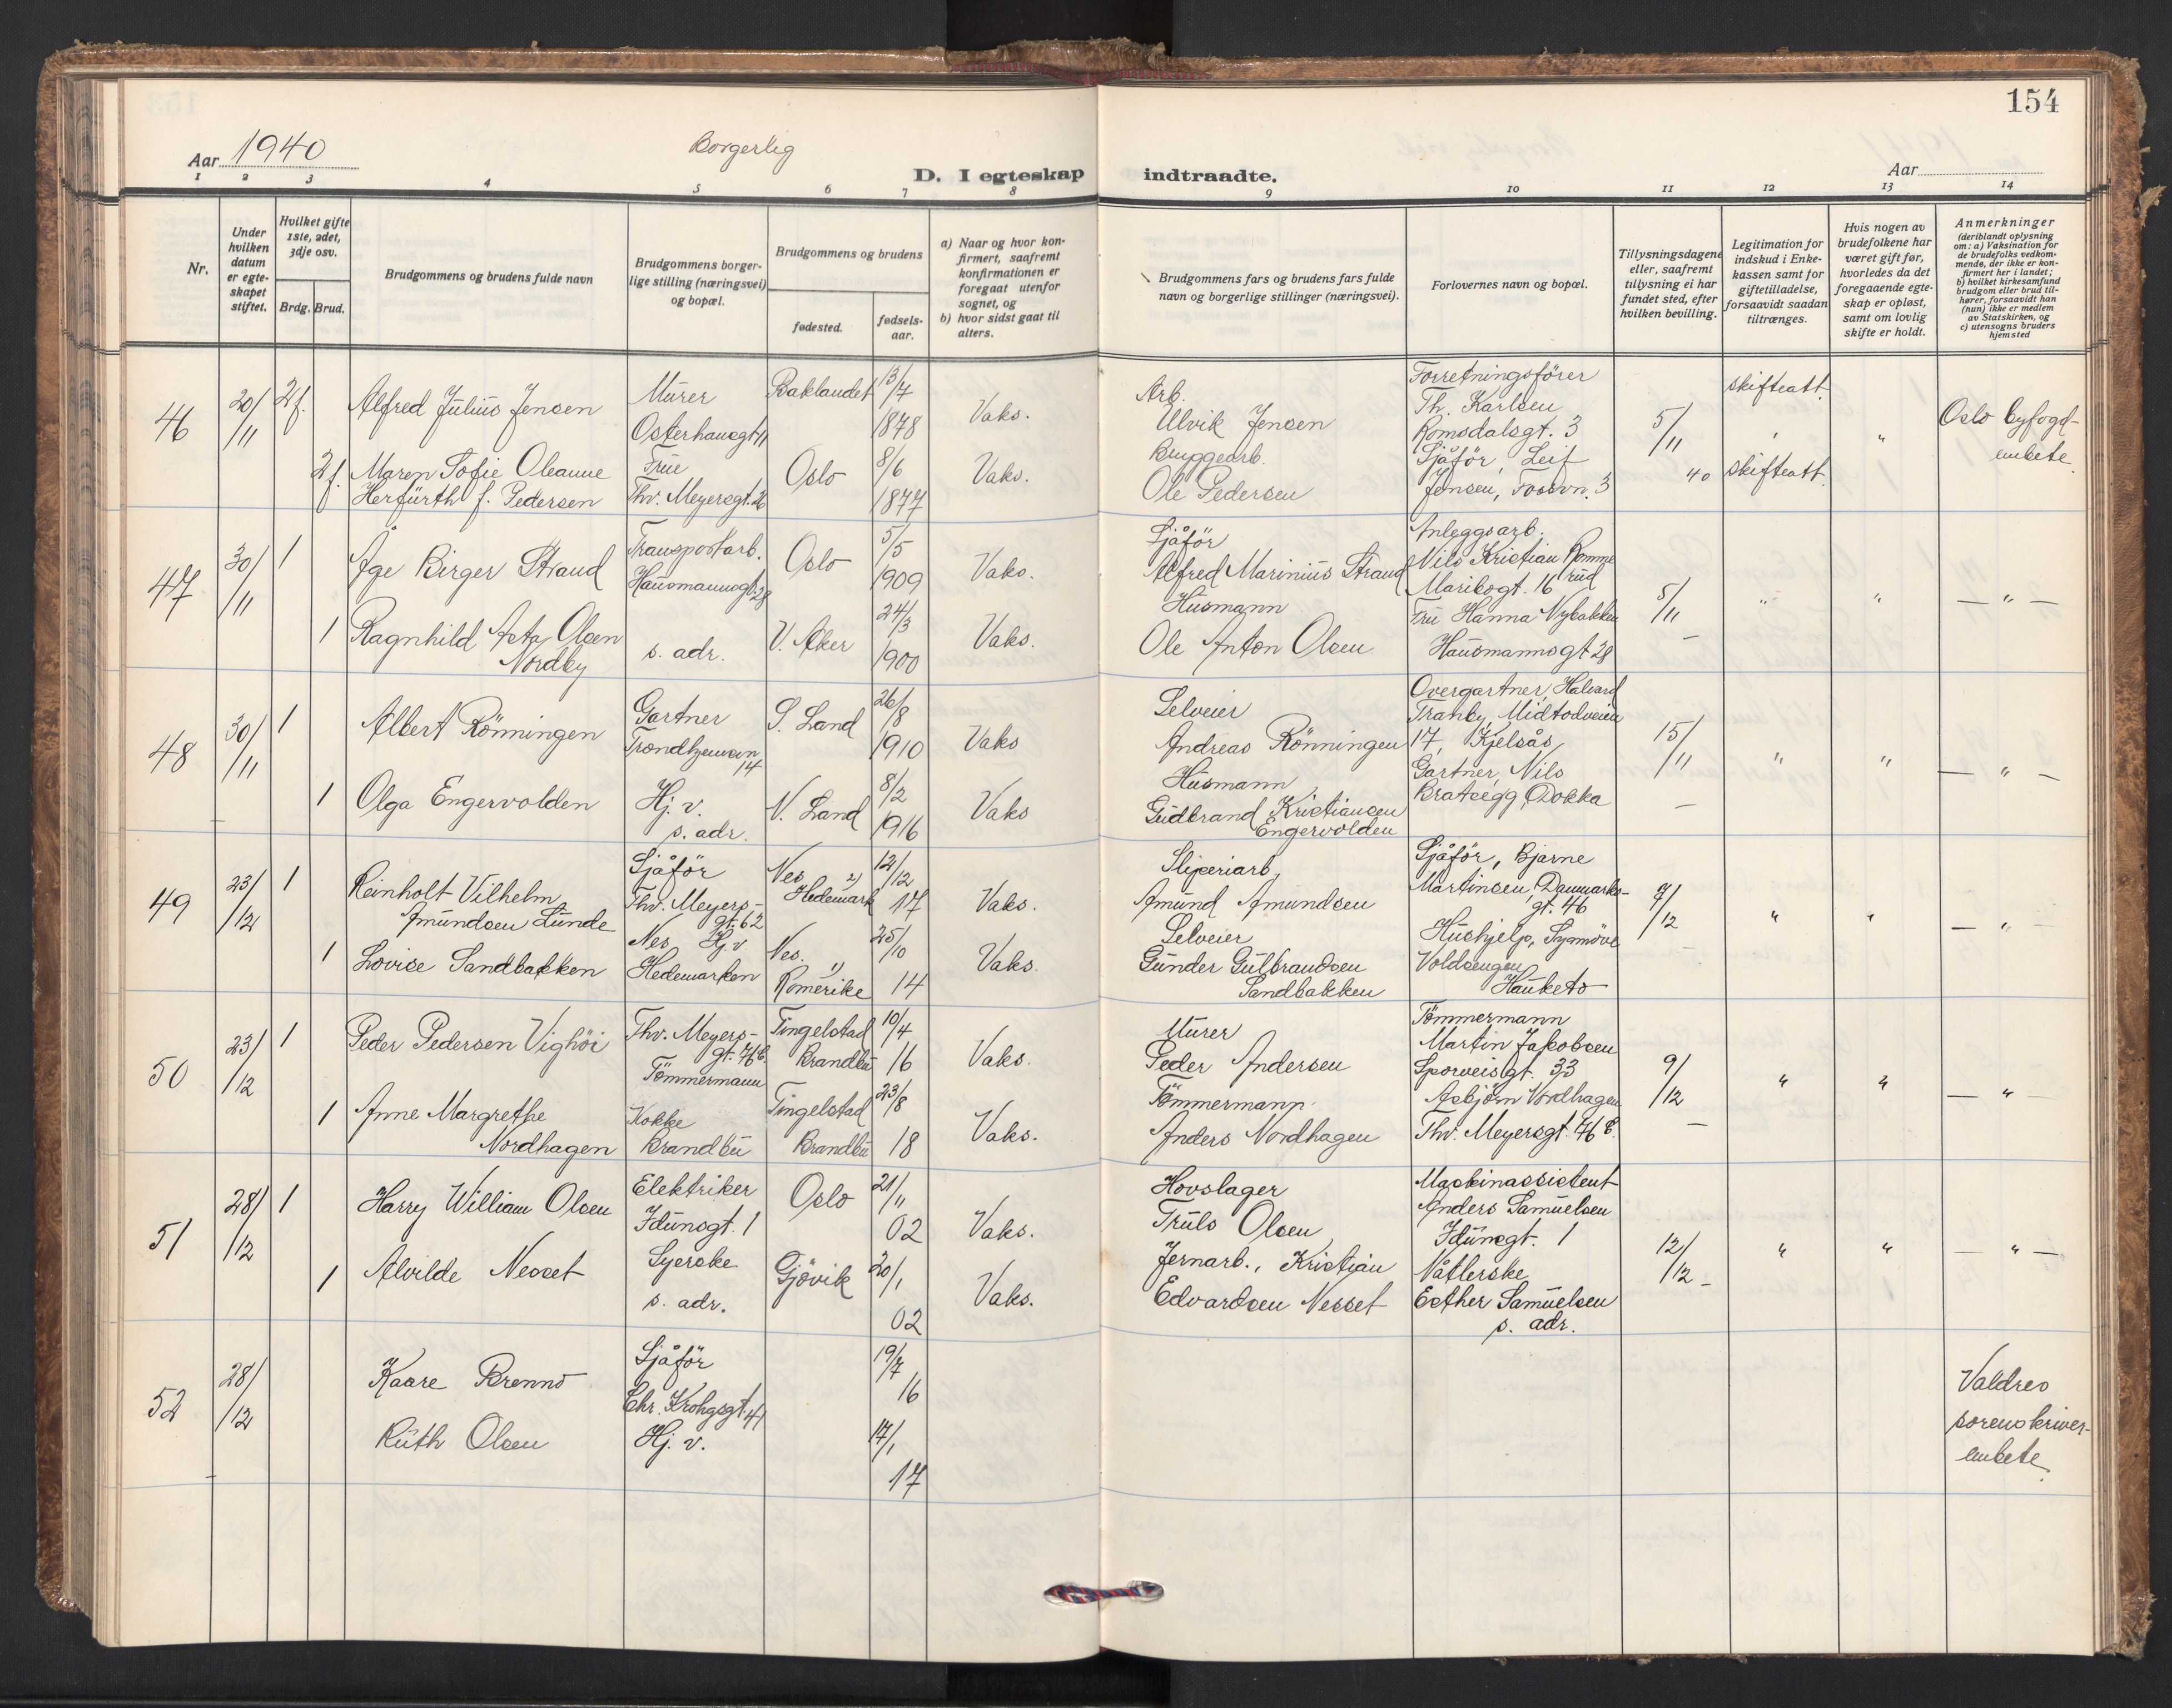 154
Aar 1940
Borgerlig
D. I egteskap indtraadte.
Aar
1 2 3 4 5 6 7 8 9 10 11 12 13 14
Nr.
Under hvilken datum er egteskapet stiftet.
Hvilket gifte 1ste, 2det, 3dje osv.
Brdg. Brud.
Brudgommens og brudens fulde navn
Brudgommens borgerlige stilling (næringsvei) og bopæl.
Brudgommens og brudens
fødested.
fødselsaar.
a) Naar og hvor konfirmert, saafremt konfirmationen er foregaat utenfor sognet, og
b) hvor sidst gaat til alters.
Brudgommens fars og brudens fars fulde navn og borgerlige stillinger (næringsvei).
Forlovernes navn og bopæl.
Tillysningsdagene eller, saafremt tillysning ei har fundet sted, efter hvilken bevilling.
Legitimation for indskud i Enkekassen samt for giftetilladelse, forsaavidt saadan tiltrænges.
Hvis nogen av brudefolkene har været gift før, hvorledes da det foregaaende egteskap er opløst, samt om lovlig skifte er holdt.
Anmerkninger
(deriblandt oplysning om: a) Vaksination for de brudefolks vedkommende, der ikke er konfirmert her i landet;
b) hvilket kirkesamfund brudgom eller brud tilhører, forsaavidt han (hun) ikke er medlem av Statskirken, og
c) utensogns bruders hjemsted
46 20/11 2 f. Alfred Julius Jensen Murer Osterhausgt 11 Baklandet 13/7 1878 Vaks. Arb. Ulvik Jensen
Forretningsförer Th. Karlsen Romsdalsgt. 3 5/11 40 skifteatt. " Oslo byfogdembete
2 f. Maren Sofie Oleanne Herfürth f. Pedersen Frue Thv. Meyersgt. 26 Oslo 8/6 1877 Vaks. Bryggearb. Ole Pedersen
Sjåför, Leif Jensen, Fossvn. 3 skifteatt.
47 30/11 1 Åge Birger Strand Transportarb. Hausmannsgt 28 Oslo 5/5 1909 Vaks. Sjåför Alfred Marinius Strand
Anleggsarb. Nils Kristian Rommerud Maribogt. 16 5/11 - " " — " —
1 Ragnhild Asta Olsen Nordby s. adr. V. Aker 24/3 1900 Vaks. Husmann Ole Anton Olsen
Fru Hanna Nybakken Hausmannsgt 28
48 30/11 1 Albert Rönningen Gartner Trondhjemsvn 14 S. Land 26/8 1910 Vaks Selveier Andreas Rönningen
Overgartner, Halvard Tranby, Midtodveien 17, Kjelsås 15/11 - " " — " —
1 Olga Engervolden Hj. v. s. adr. N. Land 8/2 1916 Vaks Husmann Gudbrand Kristiansen Engervolden
Gartner, Nils Bratsegg, Dokka
49 23/12 1 Reinholt Vilhelm Amundsen Lunde Sjåför Thv. Meyersgt. 62 Nes 2) Hedemark 12/12 17 Vaks. Sliperiarb. Amund Amundsen
Sjåför, Bjarne Martinsen, Danmarksgt. 46 7/12 - " " — " —
1 Lovise Sandbakken Nes Hj. v Hedemarken Nes. 1) Romerike 25/10 14 Vaks. Selveier Gunder Gulbrandsen Sandbakken
Hushjelp, Synnöve Voldsengen Hauketo
50 23/12 1 Peder Pedersen Vighöi Thv. Meyersgt. 76 b. Tömmermann Tingelstad Brandbu 10/4 16 Vaks. Murer Peder Andersen
Tömmermann Martin Jakobsen Sporveisgt. 33 9/12 - " " — " —
1 Anne Margrethe Nordhagen Kokke Brandbu Tingelstad Brandbu 23/8 18 Vaks. Tömmermann Anders Nordhagen
Asbjörn Nordhagen Thv. Meyersgt. 76 b.
51 28/12 1 Harry William Olsen Elektriker Idunsgt. 1 Oslo 21/11 02 Vaks. Hovslager Truls Olsen
Maskinassistent Anders Samuelsen Idunsgt. 1 12/12 - " " — " —
1 Alvilde Nesset Syerske s. adr. Gjövik 20/1 02 Vaks. Jernarb., Kristian Edvardsen Nesset
Våtlerske Esther Samuelsen s. adr.
52 28/12 Kaare Brenno Sjåför Chr. Krohgsgt. 41 19/7 16 Valdres sorenskriverembete
Ruth Olsen Hj. v. 17/1 17